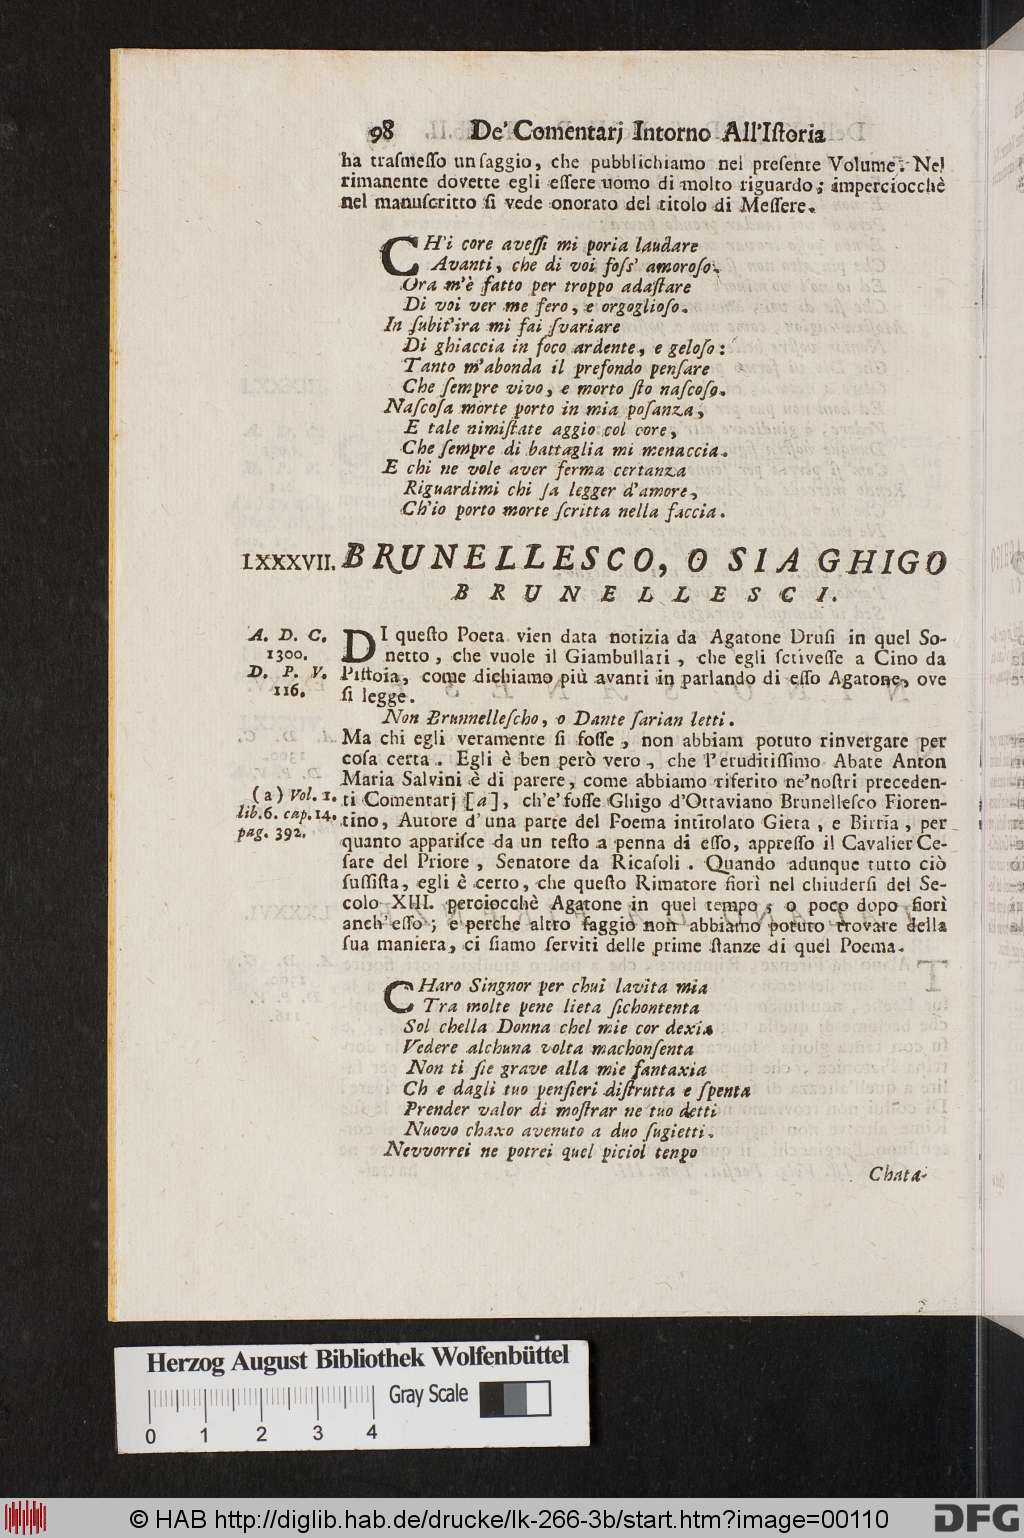 98 De' Comentarj Intorno All'Iſtoria
ha traſmeſſo un ſaggio, che pubblichiamo nel preſente Volume. Nel
rimanente dovette egli eſſere uomo di molto riguardo; imperciocchè
nel manuſcritto ſi vede onorato del titolo di Meſſere.
CH'i core aveſſi mi poria laudare
Avanti, che di voi foſs' amoroſo.
Ora m'è fatto per troppo adaſtare
Di voi ver me fero, e orgoglioſo.
In ſubit'ira mi fai ſvariare
Di ghiaccia in foco ardente, e geloſo:
Tanto m'abonda il prefondo penſare
Che ſempre vivo, e morto ſto naſcoſo.
Naſcoſa morte porto in mia poſanza,
E tale nimiſtate aggio col core,
Che ſempre di battaglia mi menaccia.
E chi ne vole aver ferma certanza
Riguardimi chi ſa legger d'amore,
Ch'io porto morte ſcritta nella faccia.
LXXXVII. BRUNELLESCO, O SIA GHIGO
BRUNELLESCI.
A. D. C.
1300.
D. P. V.
116.
DI queſto Poeta vien data notizia da Agatone Druſi in quel So-
netto, che vuole il Giambullari, che egli ſcriveſſe a Cino da
Piſtoia, come dichiamo più avanti in parlando di eſſo Agatone, ove
ſi legge.
Non Brunnelleſcho, o Dante ſarian letti.
Ma chi egli veramente ſi foſſe, non abbiam potuto rinvergare per
coſa certa. Egli è ben però vero, che l'eruditiſſimo Abate Anton
Maria Salvini è di parere, come abbiamo riferito ne'noſtri preceden-
(a) Vol. 1.
lib.6. cap.14.
pag. 392.
ti Comentarj [a], ch'e' foſſe Ghigo d'Ottaviano Brunelleſco Fioren-
tino, Autore d'una parte del Poema intitolato Gieta, e Birria, per
quanto appariſce da un teſto a penna di eſſo, appreſſo il Cavalier Ce-
ſare del Priore, Senatore da Ricaſoli. Quando adunque tutto ciò
ſuſſiſta, egli è certo, che queſto Rimatore fiorì nel chiuderſi del Se-
colo XIII. perciocchè Agatone in quel tempo, o poco dopo fiorì
anch'eſſo; e perche altro ſaggio non abbiamo potuto trovare della
ſua maniera, ci ſiamo ſerviti delle prime ſtanze di quel Poema.
CHaro Singnor per chui lavita mia
Tra molte pene lieta ſichontenta
Sol chella Donna chel mie cor dexia
Vedere alchuna volta machonſenta
Non ti ſie grave alla mie fantaxia
Ch e dagli tuo penſieri diſtrutta e ſpenta
Prender valor di moſtrar ne tuo detti
Nuovo chaxo avenuto a duo ſugietti.
Nevvorrei ne potrei quel piciol tenpo
Chata-
Herzog August Bibliothek Wolfenbüttel
Gray Scale
0 1 2 3 4
© HAB http://diglib.hab.de/drucke/lk-266-3b/start.htm?image=00110
DFG